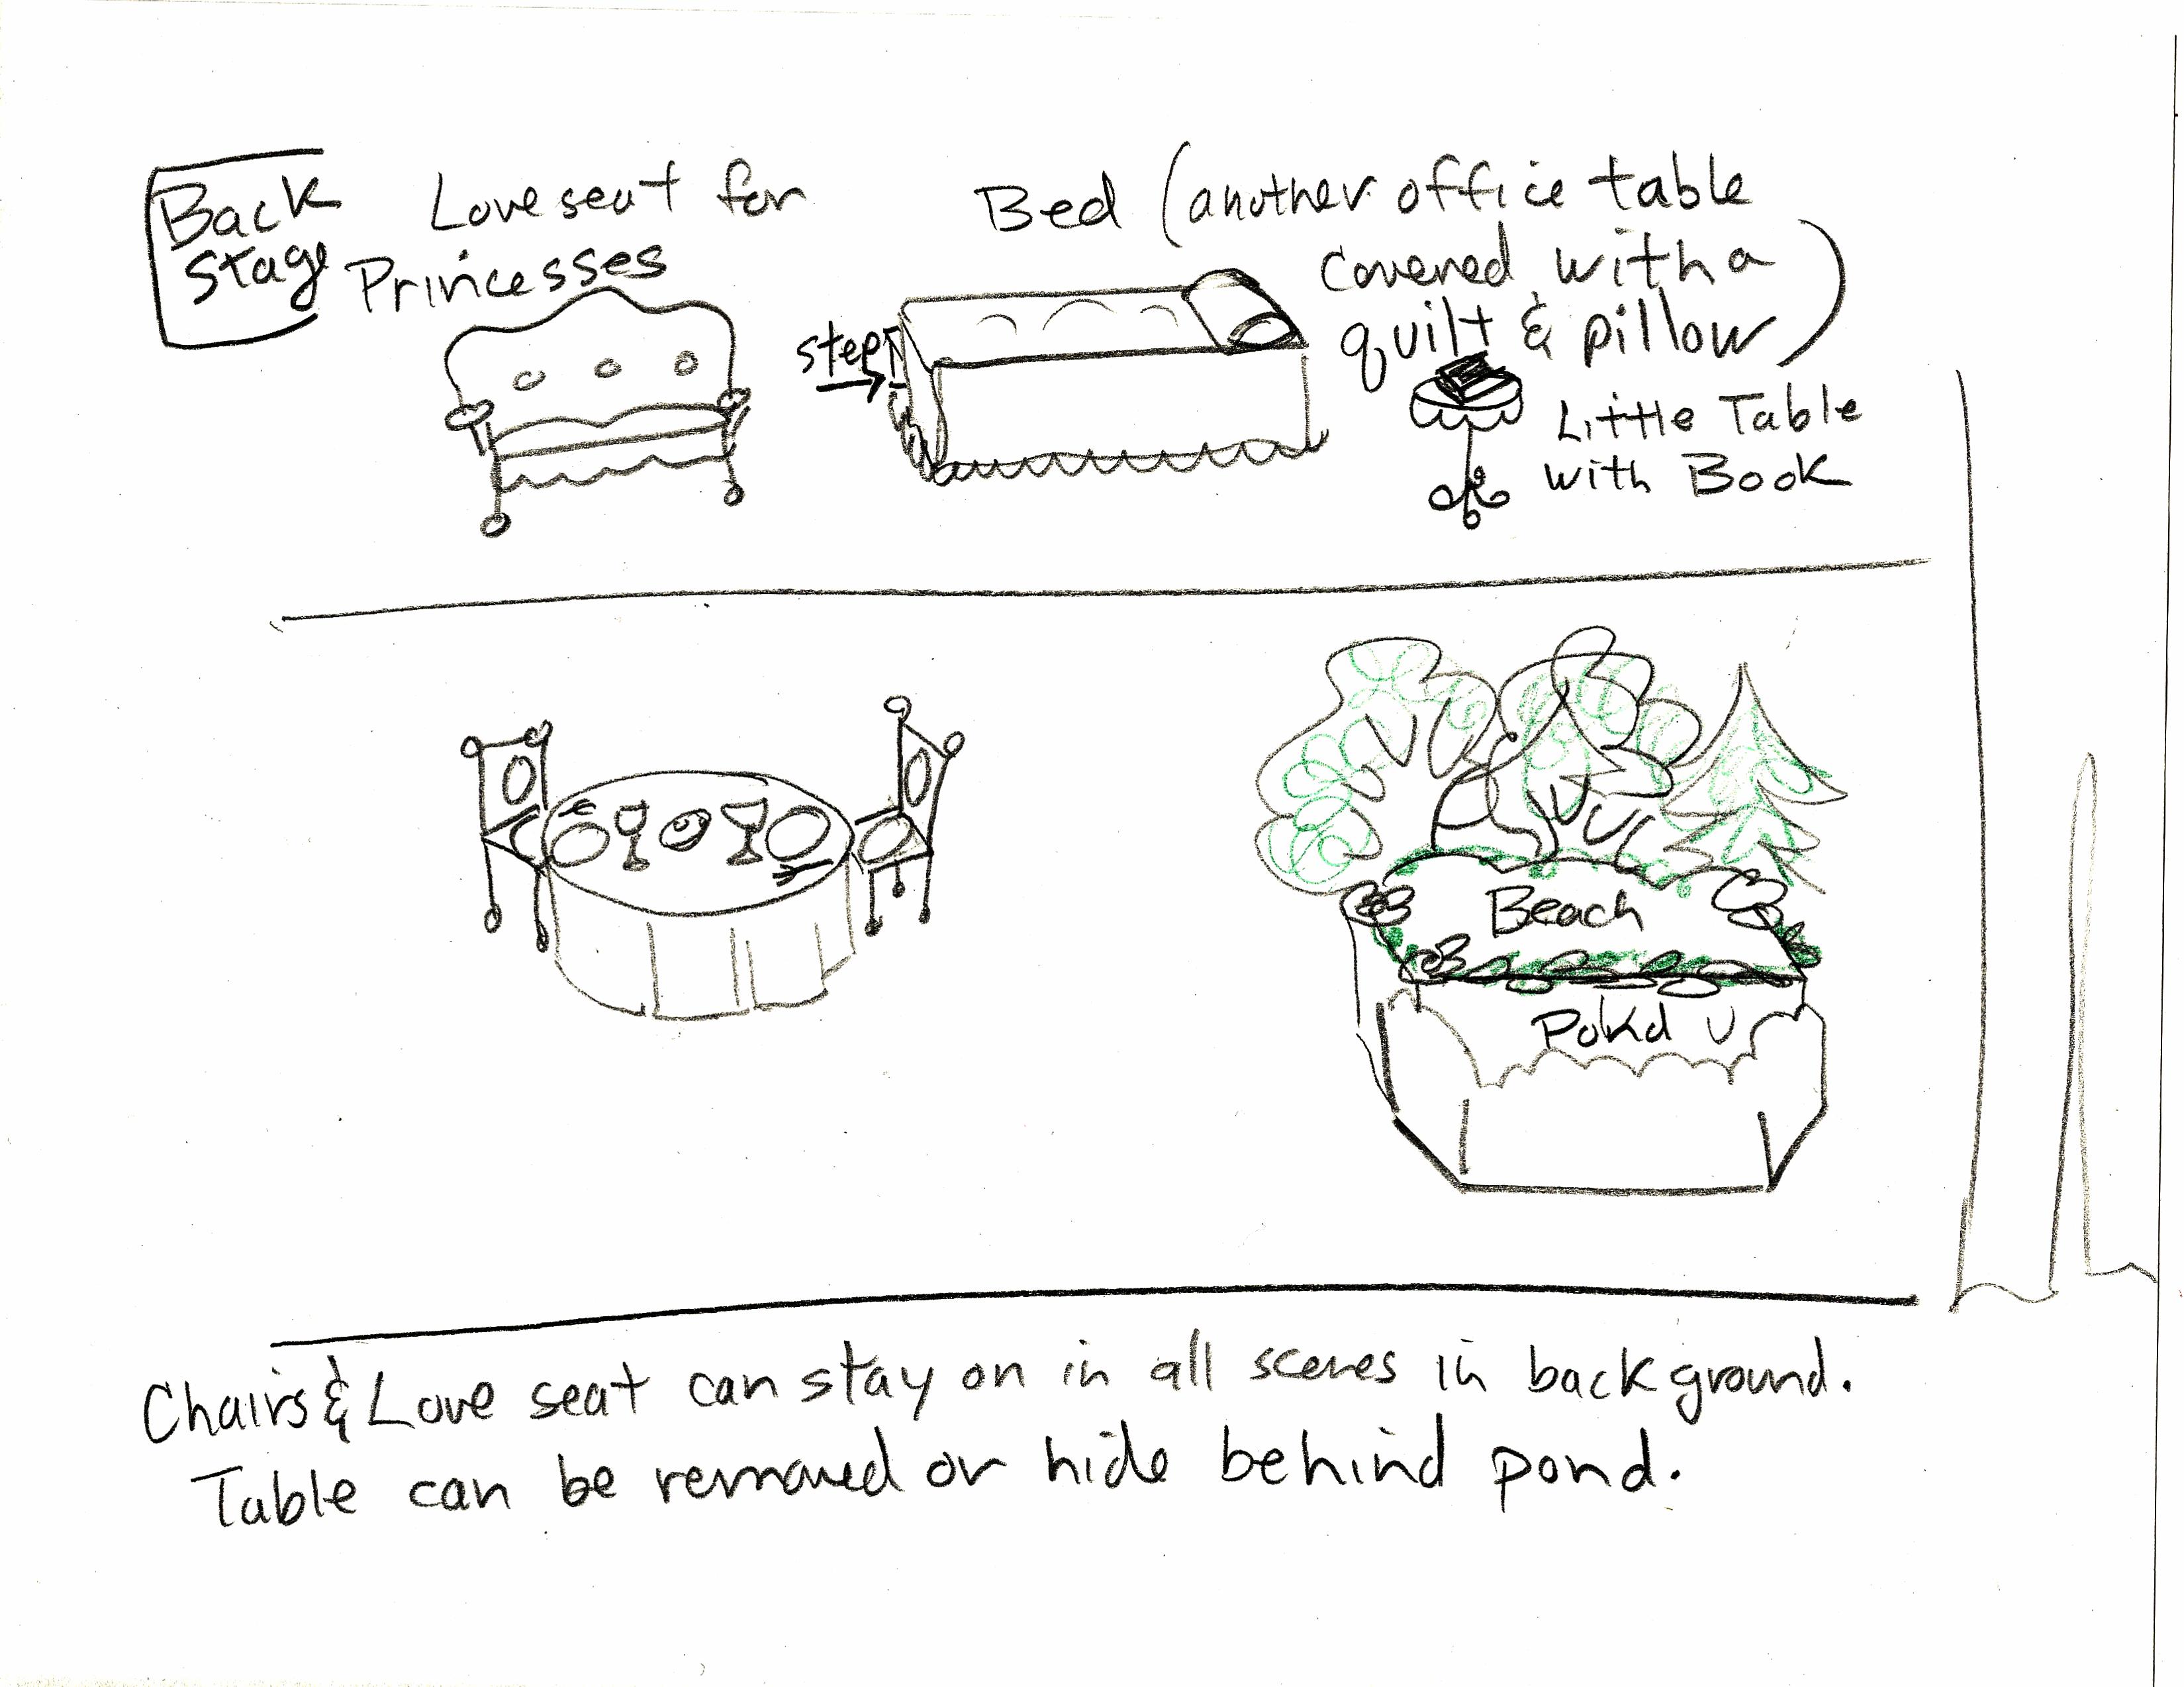 Back
Stage
Love seat for
Princesses
Bed (another office table
covered with a
quilt & pillow)
step
Little Table
with Book
Beach
Pond
Chairs & Love seat can stay on in all scenes in background.
Table can be removed or hide behind pond.